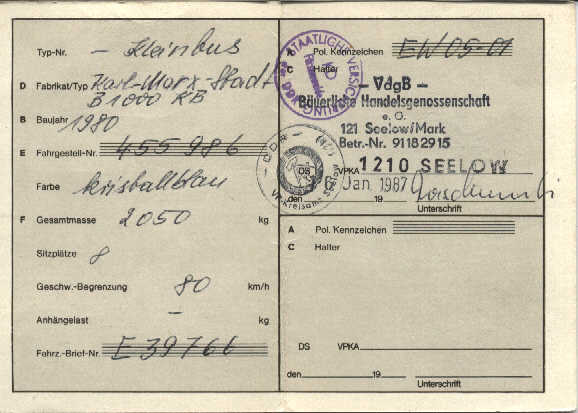 Typ-Nr. – Kleinbus
D Fabrikat/Typ Karl-Marx-Stadt
B 1000 KB
B Baujahr 1980
E Fahrgestell-Nr. 455 986
Farbe kristallblau
F Gesamtmasse 2050 kg
Sitzplätze 8
Geschw.-Begrenzung 80 km/h
Anhängelast – kg
Fahrz.-Brief-Nr. E 39766
A Pol. Kennzeichen EW 05-01
C Halter
STAATLICHE VERSICHERUNG
– VdgB –
Bäuerliche Handelsgenossenschaft
e. G.
121 Seelow/Mark
Betr.-Nr. 91182915
VPKA 1210 SEELOW
– DDR –
DS
VP-Kreisamt Seelow
den Jan. 1987 19
Unterschrift
A Pol. Kennzeichen
C Halter
DS VPKA
den 19
Unterschrift